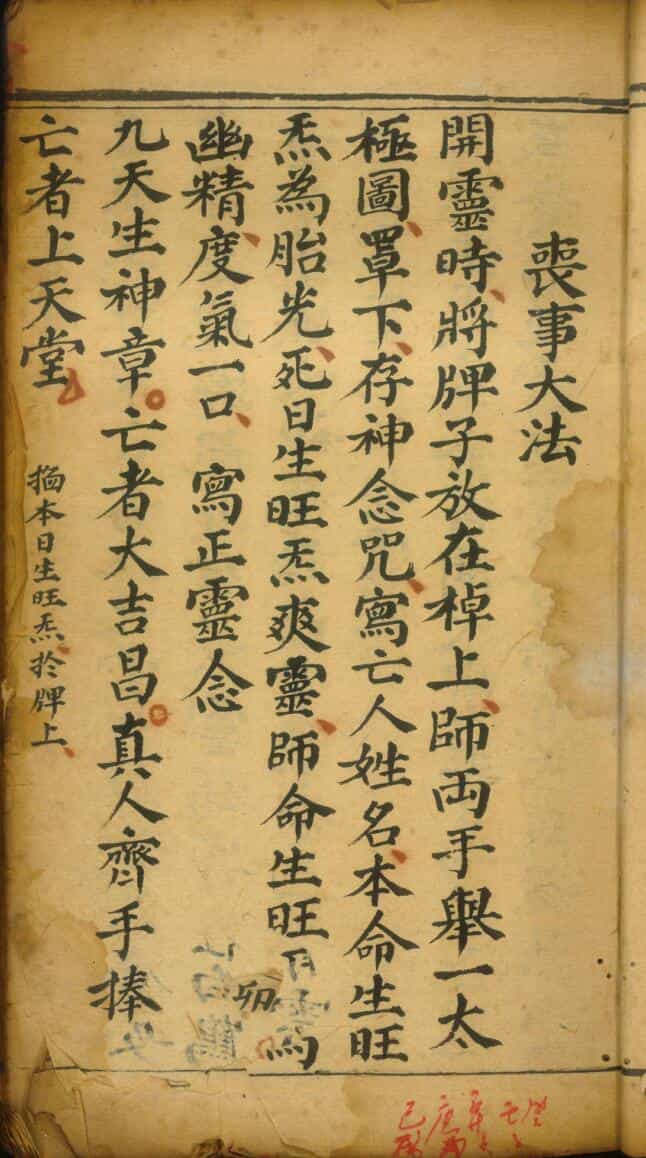 喪事大法
開靈時、將牌子放在棹上、師両手舉一太
極圖、罩下、存神念咒、寫亡人姓名、本命生旺
炁為胎光、死日生旺炁爽靈、師命生旺
幽精、度氣一口、寫正靈念
九天生神章。亡者大吉昌。真人齊手捧
亡者上天堂
本日生旺炁於牌上、
卯
白鶴